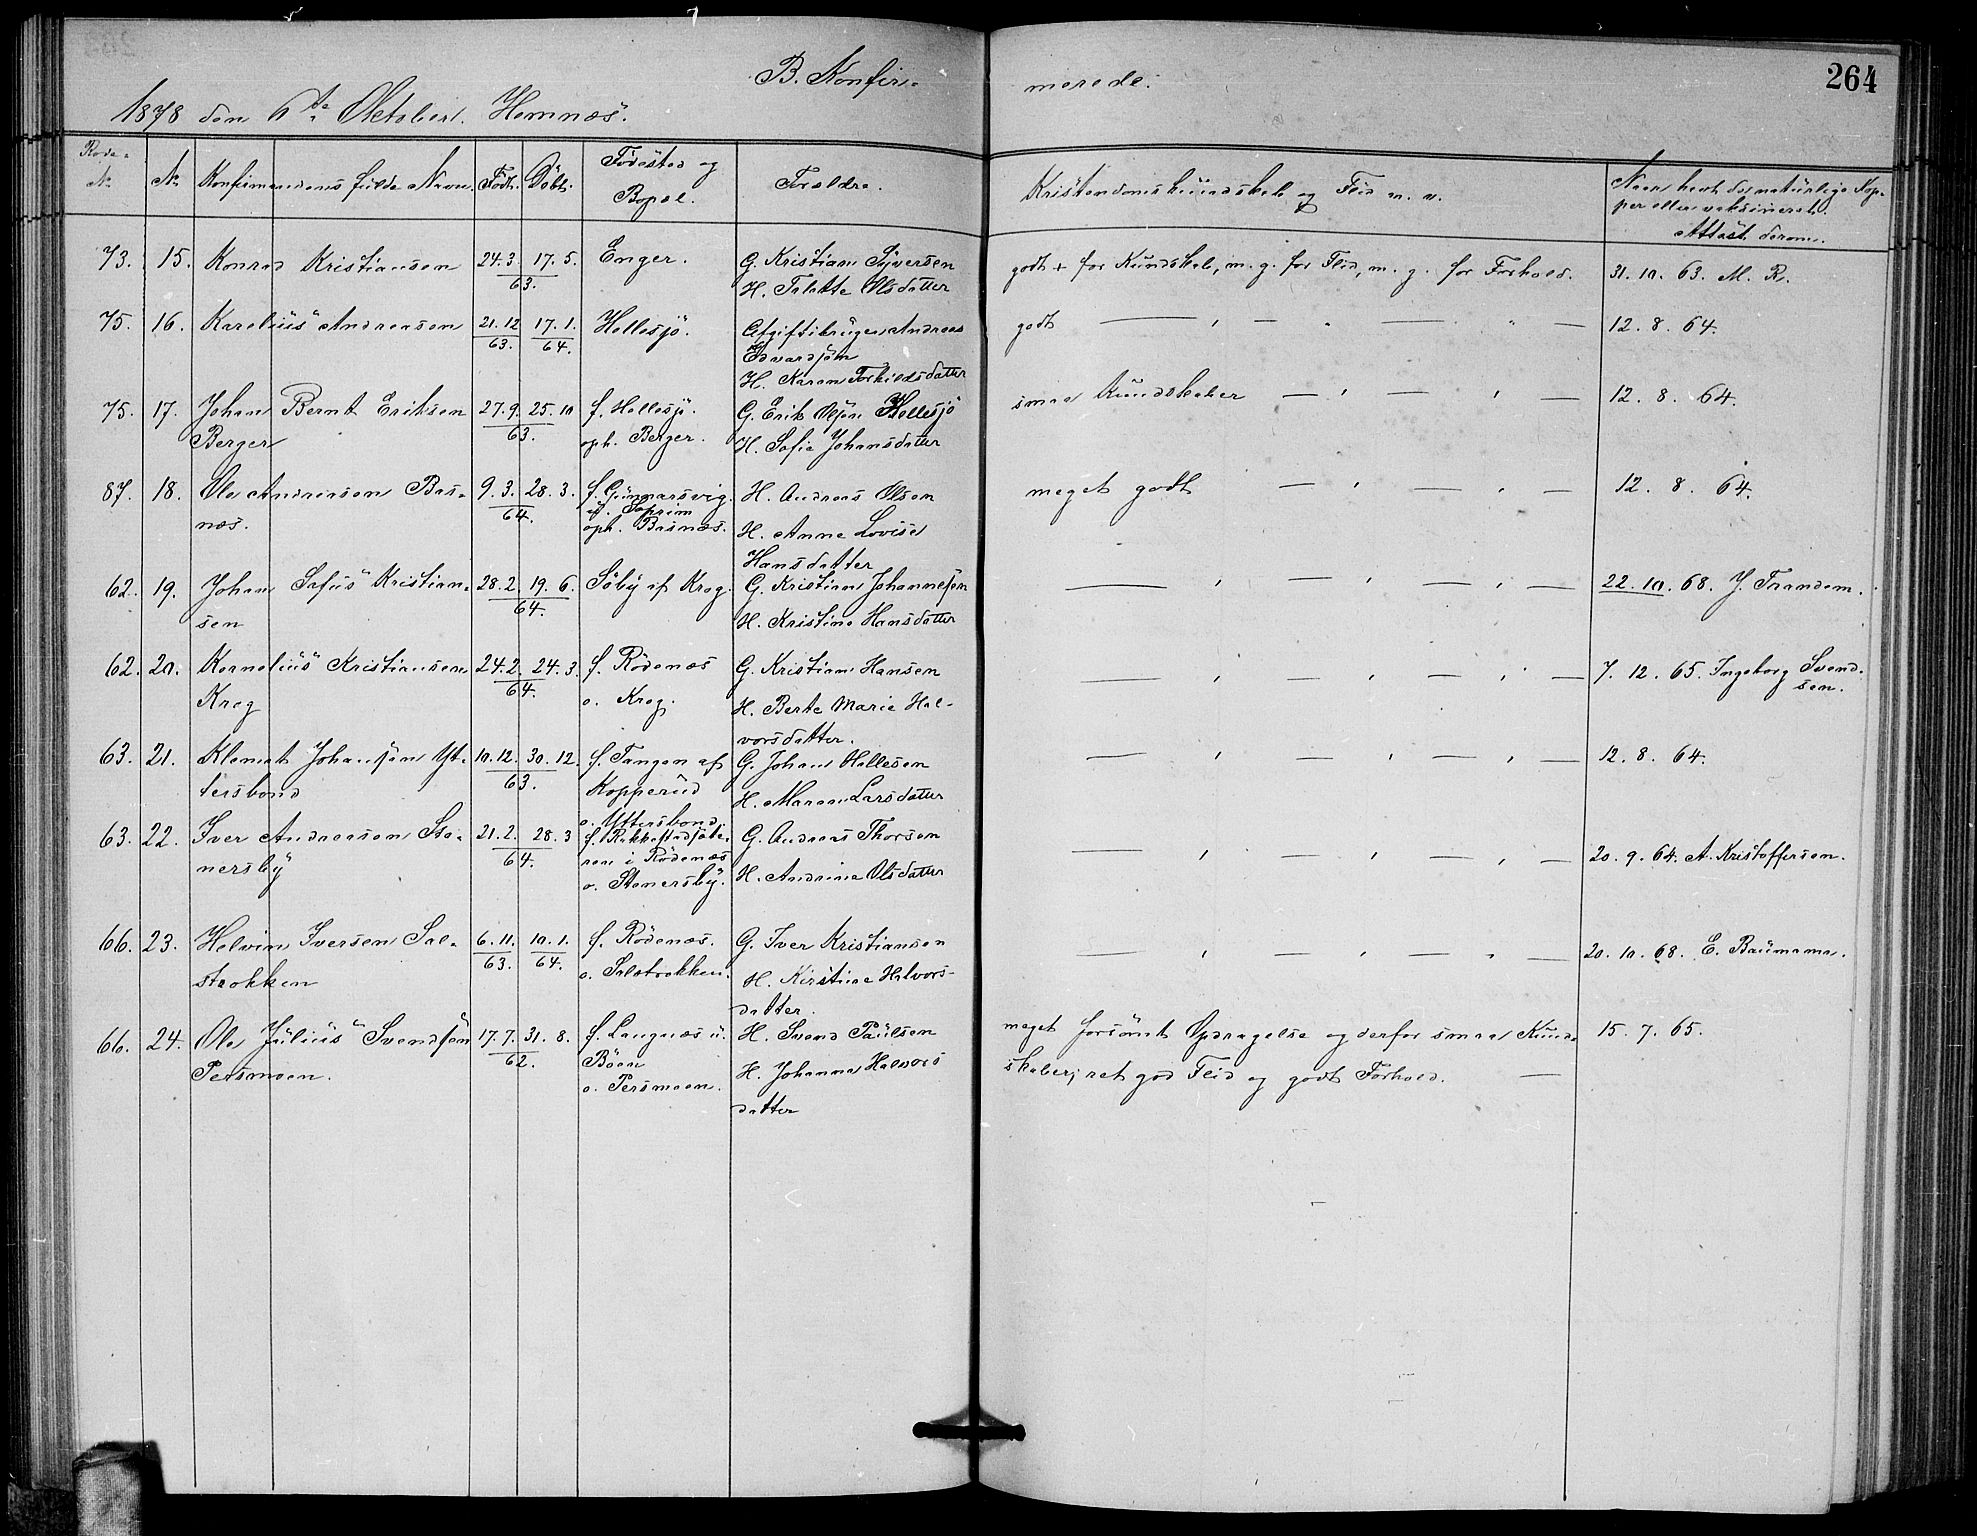 B. Konfir-
merede.
264
1878 den 6te Oktober. Hemnæs.
Rode- N.
N.
Konfirmandens fulde Navn.
Født.
Döbt.
Födested og Bopæl.
Forældre.
Kristendomskundskab og Flid m. v.
Naar havt de naturlige Kop-
per eller vaksineret.
Attest derom.
73. 15. Konrad Kristiansen 24.3. 17.5. Enger. G. Kristian Syversen godt + for Kundskab, m. g. for Flid, m. g. for Forhold. 31. 10. 63. M. R.
63. H. Olsdatter
75. 16. Karelius Andreasen 21.12 17.1. Hellesjö. Afgiftsbruger Andreas godt — " — " — " — 12. 8. 64.
63. 64. Edvardsen
H. Karen Torkildsdatter
75. 17. Johan Bernt Eriksen 27.9. 25.10 f. Hellesjö. G. Erik Hellesjö smaa Kundskaber — " — " — 12. 8. 64.
Berger 63. oph. Berger. H. Sofie Johansdatter
87. 18. Ole Andreasen Bas- 9.3. 28.3. f. Gunnarsvig. H. Andreas Olsen meget godt — " — " — 12. 8. 64.
næs. 64. oph. Basnæs. H. Anne Lovise
Hansdatter
62. 19. Johan Sofus Kristian- 28.2. 19.6. Söby af Krog. G. Kristian Johannesen — " — " — " — 22. 10. 68. J. Trandem.
sen 64. H. Kristine Hansdatter
62. 20. Kornelius Kristiansen 24.2. 24.3. f. Rödenæs G. Kristian Hansen — " — " — " — 7. 12. 65. Ingeborg Svend-
sen.
Krog 64. o. Krog. H. Berte Marie Hal-
vorsdatter.
63. 21. Klemet Johansen Yt- 10.12. 30.12. f. Tangen af G. Johan Hellesen — " — " — " — 12. 8. 64.
tersbond 63. Kopperud H. Maren Larsdatter
o. Yttersbond.
63. 22. Iver Andreasen Sto- 21.2. 28.3 G. Andreas Thorsen — " — " — " — 20. 9. 64. A. Kristoffersen.
nersby 64. i Rödenæs
o. Stonersby. H. Andrine Olsdatter
66. 23. Helvin Iversen Sal- 6.11. 10.1. f. Rödenæs. G. Iver Kristiansen — " — " — " — 20. 10. 68. E. Baumann.
strokken 63. 64. o. Salstrokken. H. Kirstine Halvors-
datter.
66. 24. Ole Julius Svendsen 17.7. 31.8. f. Langnæs u. H. Svend Paulsen meget forsömt Opdragelse og derfor smaa Kund- 15. 7. 65.
Persmoen. 62. Böen H. Johanne Halvors skaber; ret god Flid og godt Forhold. —
o. Persmoen. datter